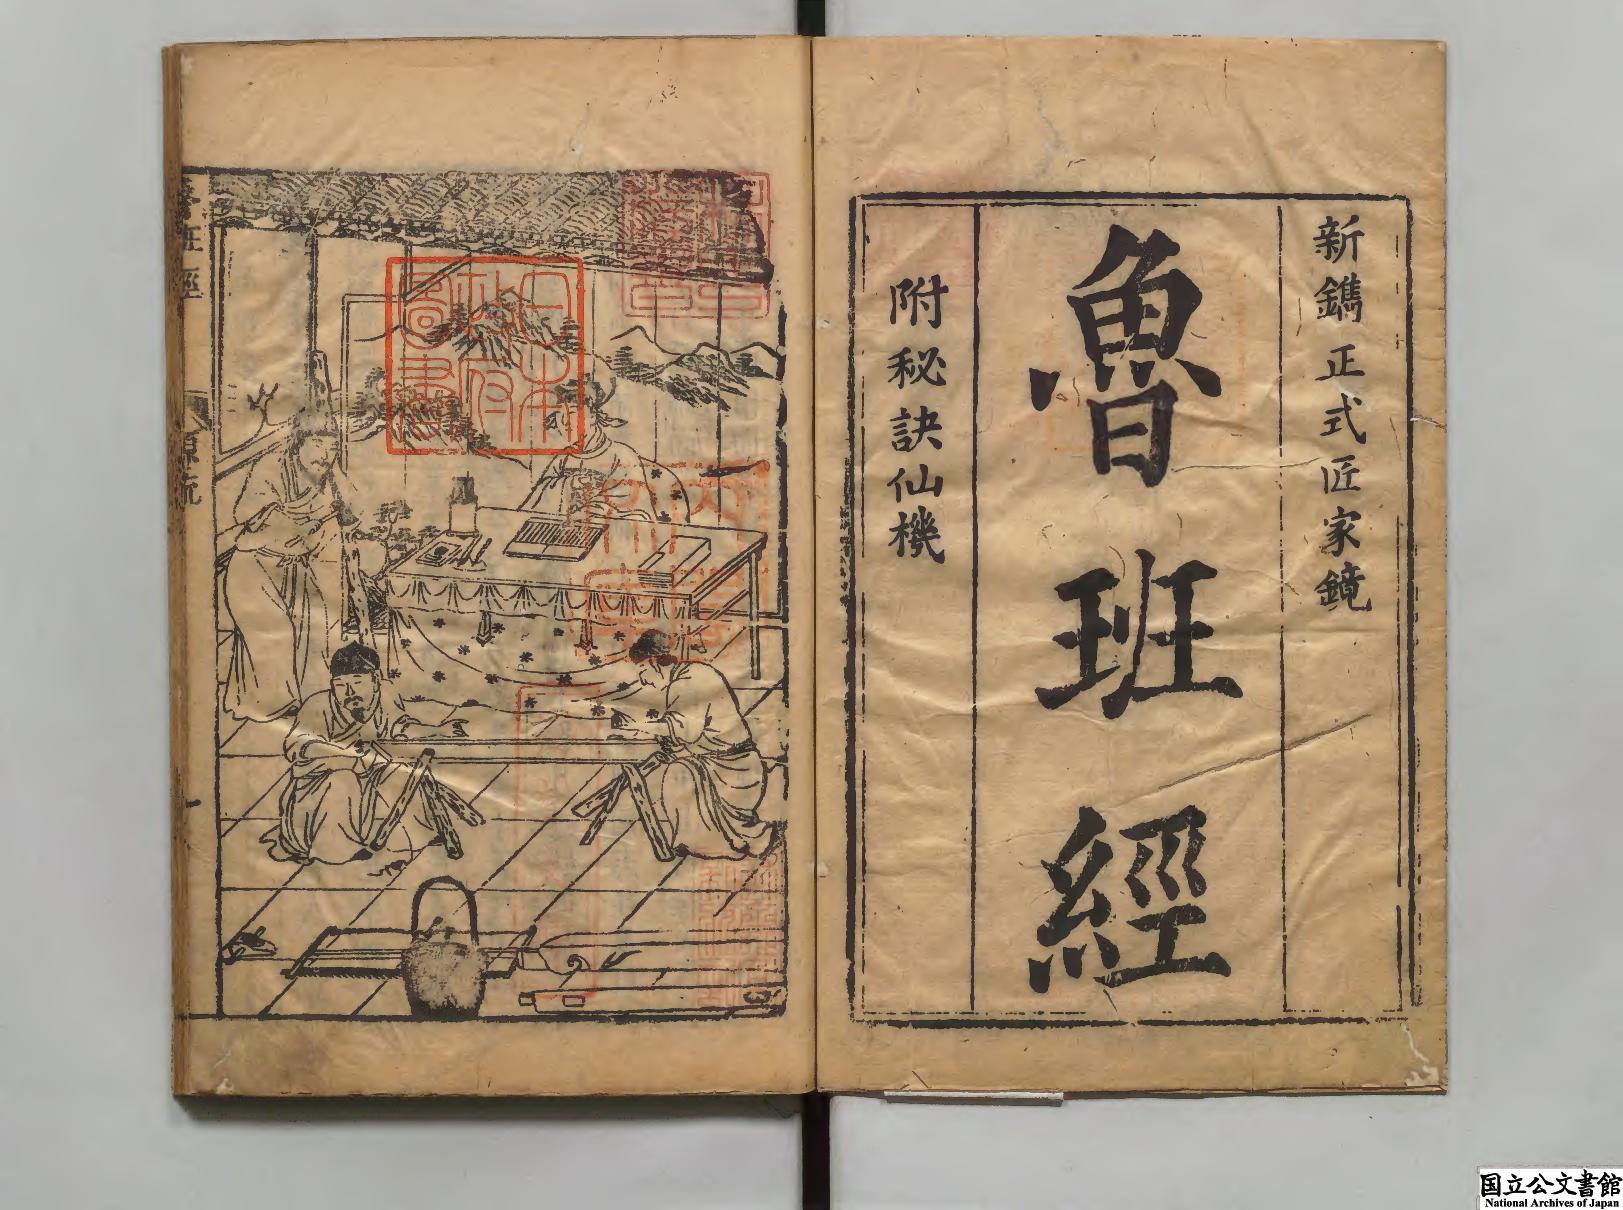 新鐫正式匠家鏡
魯班經
附秘訣仙機
魯班經
源流
一
日本
政府
圖書
国立公文書館
National Archives of Japan